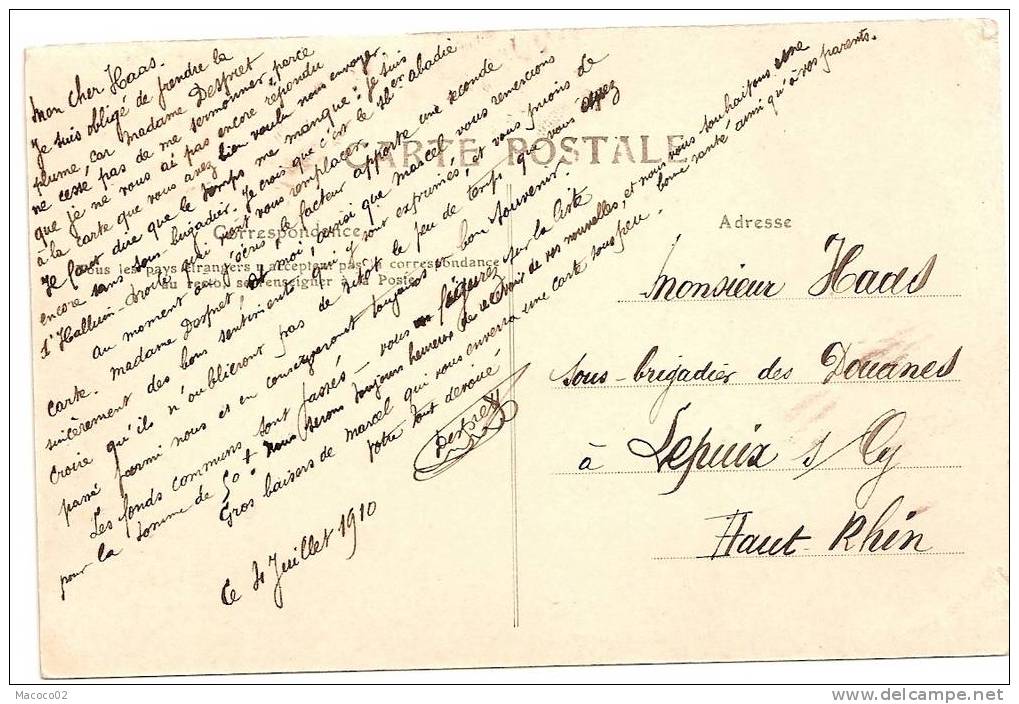 Mon cher Haas.
Je suis obligé de prendre la
plume, car Madame Despret
ne cesse pas de me sermonner parce
que je ne vous ai pas encore répondu
à la carte que vous avez bien voulu nous envoyer.
Il faut dire que le temps me manque : je suis
encore sans sous-brigadier. Je crois que c'est le Sber abadie
d'Halluin-droite qui vient vous remplacer.
au moment où j'écris, le facteur apporte une seconde
carte. Madame Despret et moi, ainsi que Marcel vous remercions
sincèrement des bons sentiments qui y sont exprimés, et vous prions de
croire qu'ils n'oublieront pas de sitôt le peu de temps que vous avez
passé parmi nous et en conserveront toujours un bon souvenir.
Les fonds communs sont passés - vous figurez sur la liste
pour la somme de 50+ Nous serons toujours heureux de recevoir de vos nouvelles, et nous vous souhaitons une
bonne santé ainsi qu'à vos parents.
Gros baisers de Marcel qui vous enverra une carte sous peu.
Votre tout dévoué
Despret
Ce 4 Juillet 1910
CARTE POSTALE
Correspondance
Tous les pays étrangers n'acceptent pas la correspondance
au recto, se renseigner à la Poste
Adresse
Monsieur Haas
sous-brigadier des Douanes
à Lepuix s/ Gy
Haut-Rhin
Macoco02
www.delcampe.net